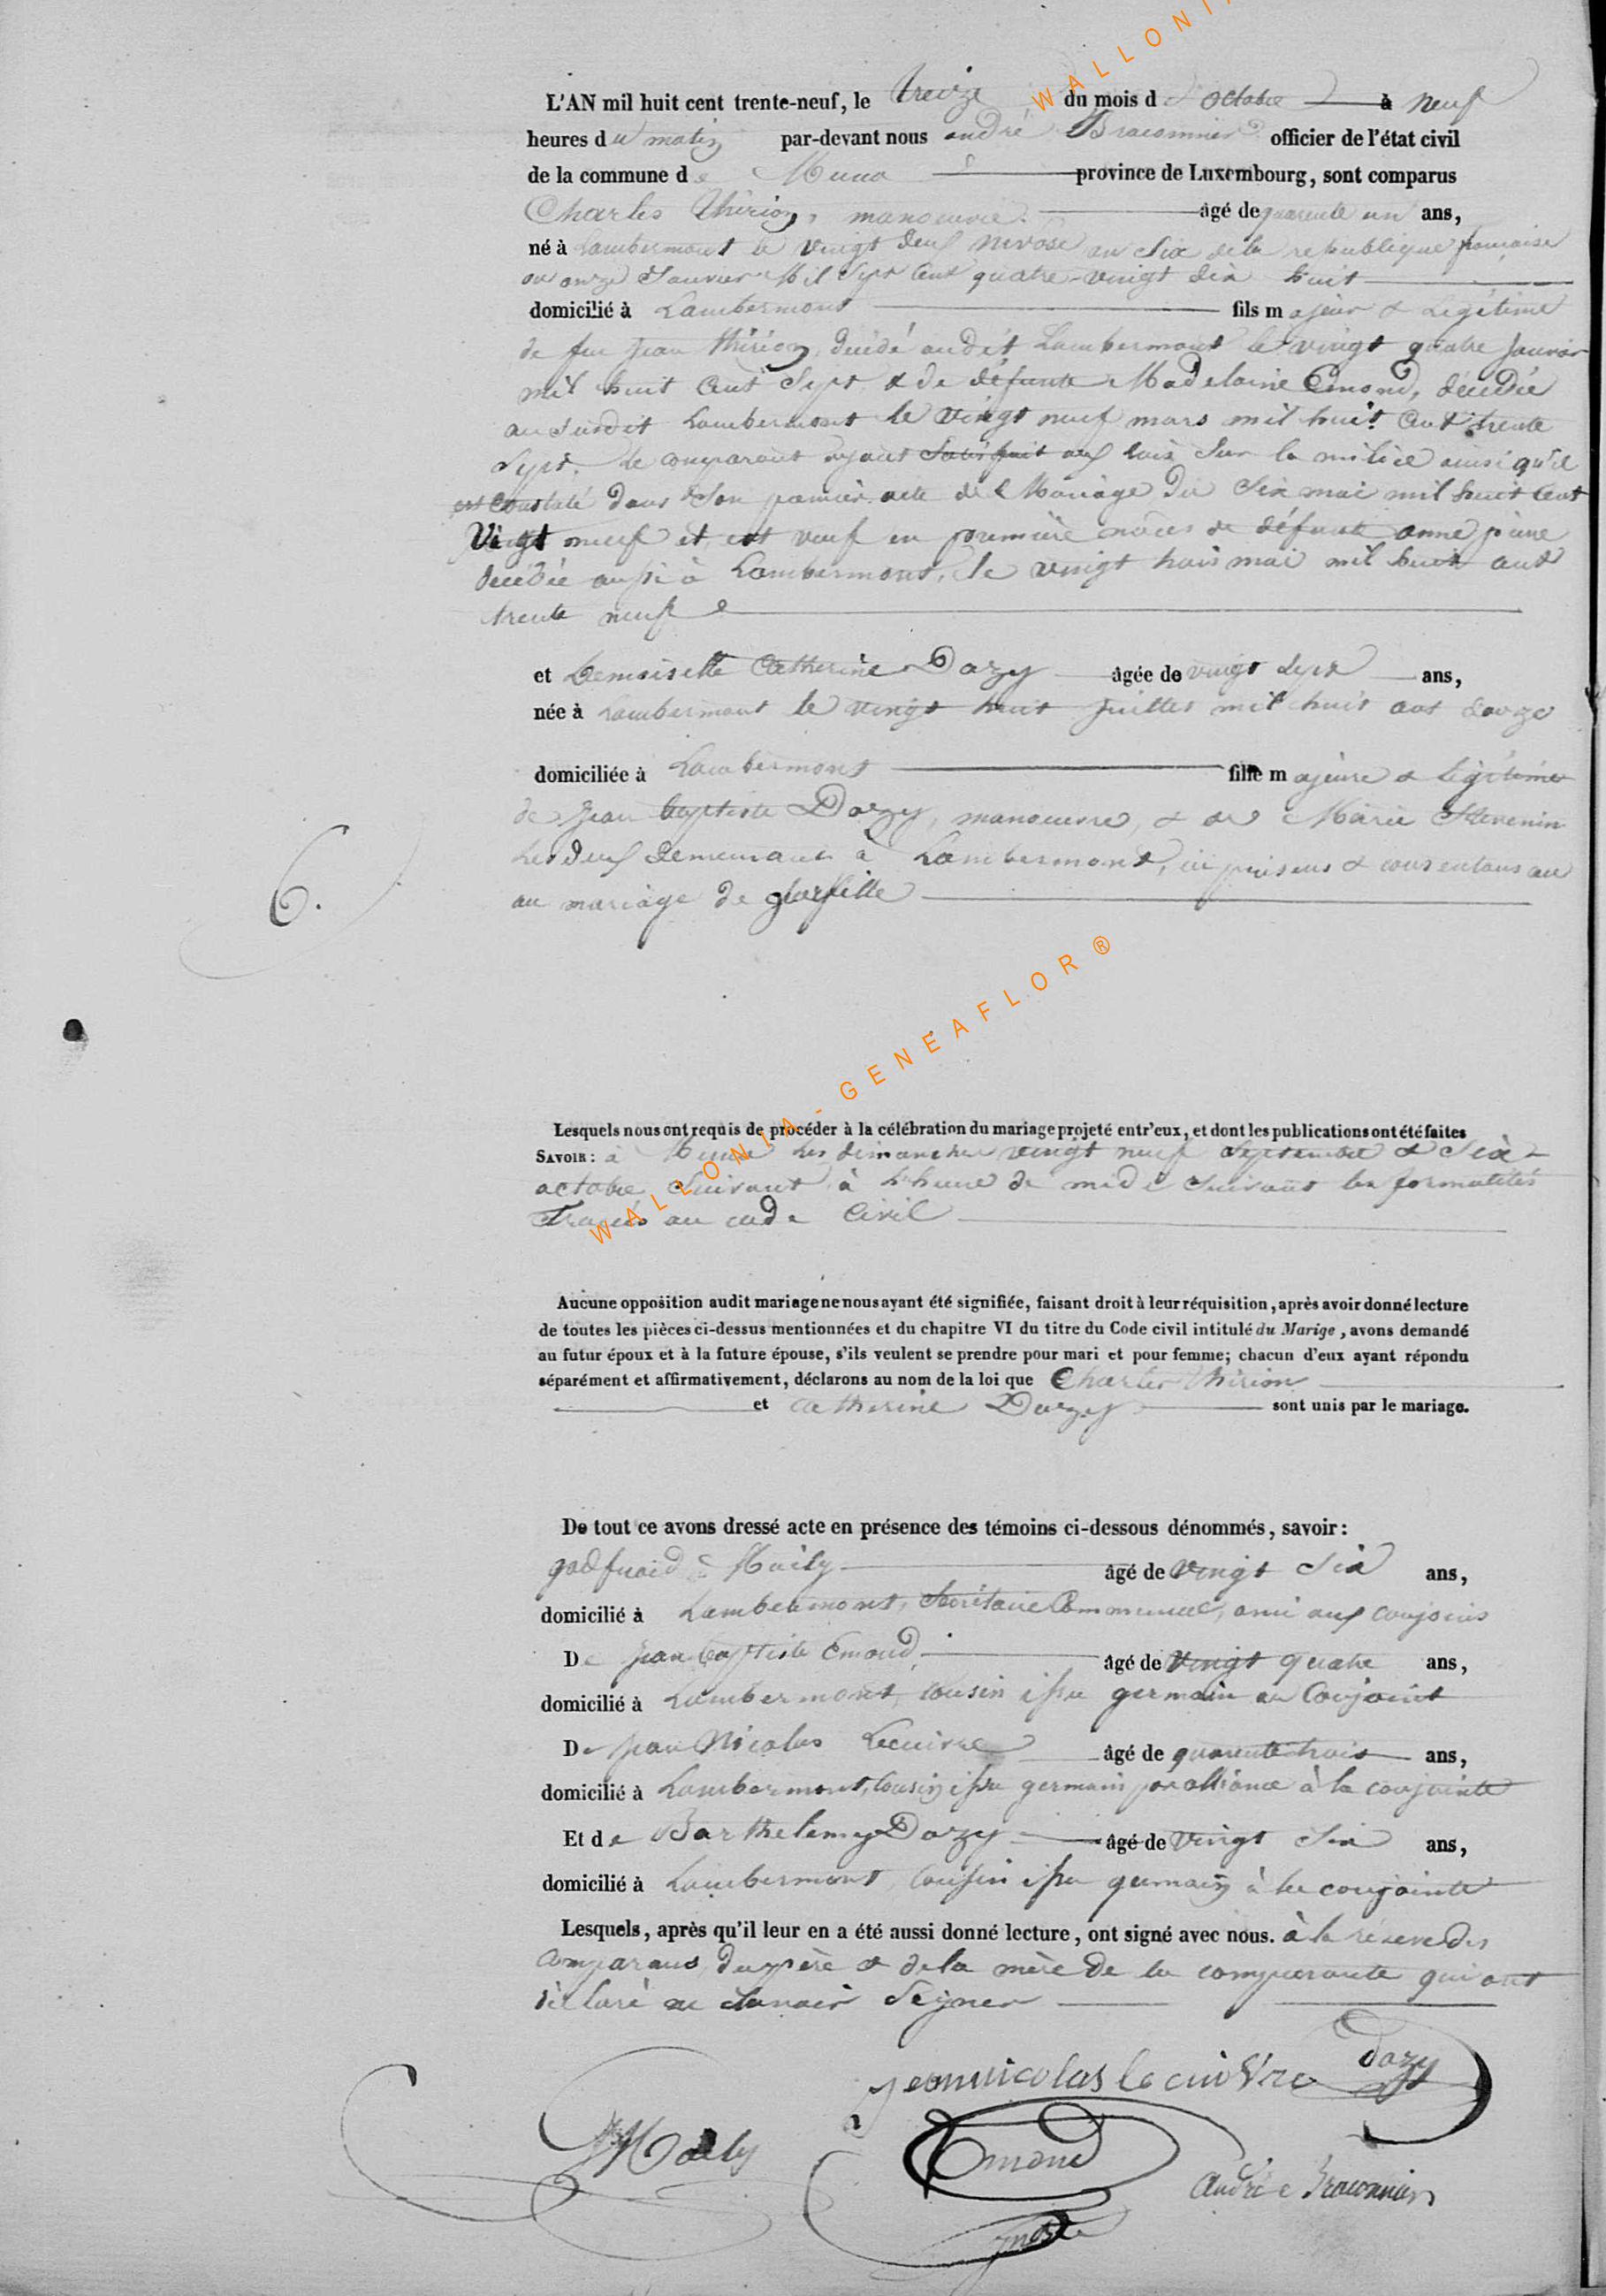 L'AN mil huit cent trente-neuf, le treize du mois d'octobre à neuf
heures du matin par-devant nous andré Braconnier officier de l'état civil
de la commune de Muno province de Luxembourg, sont comparus
Charles Thirion, manoeuvre âgé de quarente un ans,
né à Lambermont le vingt deux nivose an Six de la republique française
ou onze Janvier Mil Sept Cent quatre-vingt dix huit
domicilié à Lambermont fils majeur & Légitime
de feu Jean thirion, décédé audit Lambermont le vingt quatre Janvier
mil huit Cent Sept & de défunte Madelaine Emond, décédée
au susdit Lambermont le vingt neuf mars mil huit Cent trente
Sept. le comparant ayant Satisfait aux lois Sur la milice ainsi qu'il
est Constaté dans Son premier acte de Mariage du Six mai mil huit Cent
Vingt neuf et est veuf en première noces de défunte anne
décédée aussi à Lambermont, le vingt trois mai mil huit cent
trente neuf
et Demoiselle Catherine Dozy âgée de vingt Sept ans,
née à Lambermont le vingt huit Juillet mil huit cent douze
domiciliée à Lambermont fille majeure & légitime
de Jean baptiste Dozy, manoeuvre, & de Marie Stevenin
Les deux demeurant à Lambermont, ici présens & consentans au
au mariage de fille
6.
Lesquels nous ont requis de procéder à la célébration du mariage projeté entr'eux, et dont les publications ont été faites
SAVOIR : à Muno les dimanches vingt neuf Septembre & Six
octobre Suivant, à L'heure de midi Suivant les formalités
Tracées au code Civil
Aucune opposition audit mariage ne nous ayant été signifiée, faisant droit à leur réquisition, après avoir donné lecture
de toutes les pièces ci-dessus mentionnées et du chapitre VI du titre du Code civil intitulé du Marige, avons demandé
au futur époux et à la future épouse, s'ils veulent se prendre pour mari et pour femme; chacun d'eux ayant répondu
séparément et affirmativement, déclarons au nom de la loi que Charles thirion
et catherine Dozy sont unis par le mariage.
De tout ce avons dressé acte en présence des témoins ci-dessous dénommés, savoir :
godfroid Maily âgé de vingt Six ans,
domicilié à Lambermont, Secrétaire Communal, ami aux conjoins
De Jean baptiste Emond âgé de vingt quatre ans,
domicilié à Lambermont, cousin issu germain au Conjoint
De Jean Nicolas Lecuivre âgé de quarente trois ans,
domicilié à Lambermont, Cousin issu germain par alliance à la conjointe
Et de Barthelemy Dozy âgé de vingt Six ans,
domicilié à Lambermont, Cousin issu germain à la conjointe
Lesquels, après qu'il leur en a été aussi donné lecture, ont signé avec nous. à la réserve des
comparans, du père & de la mère de la comparante qui ont
déclaré ne Savoir Signer
jeannicolas le cuivre dozy
Maily Emond André Braconnier
WALLONIA - GENEAFLOR ®